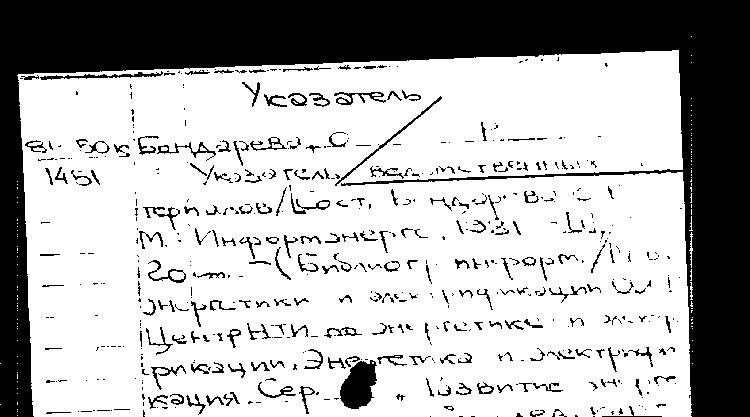 Указатель
81-50к Бондарева, О Р
1451 Указатель ведомственных
териалов/Сост. Бондарева
М.: Информэнерго, 1981
20 см. – (Библиогр информ. /
энергетики и электрификации
ЦентрНТИ по энергетике и электр
фикации. Энергетика и электрифи
кация. Сер. , Развитие энерге